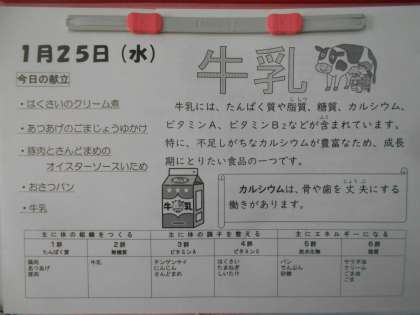 1月25日（水）
今日の献立
・はくさいのクリーム煮
・あつあげのごまじょうゆかけ
・豚肉とさんどまめの
オイスターソースいため
・おさつパン
・牛乳
牛乳
牛乳には、たんぱく質や脂質、糖質、カルシウム、
ビタミンA、ビタミンB2などが含まれています。
特に、不足しがちなカルシウムが豊富なため、成長
期にとりたい食品の一つです。
牛乳
カルシウムは、骨や歯を丈夫にする
働きがあります。
主に体の組織をつくる 主に体の調子を整える 主にエネルギーになる
1群 2群 3群 4群 5群 6群
たんぱく質 無機質 ビタミンA ビタミンC 炭水化物 脂質
鶏肉 牛乳 チンゲンサイ はくさい パン サラダ油
あつあげ にんじん たまねぎ でんぷん クリーム
豚肉 さんどまめ しいたけ 砂糖 ごま油
ごま